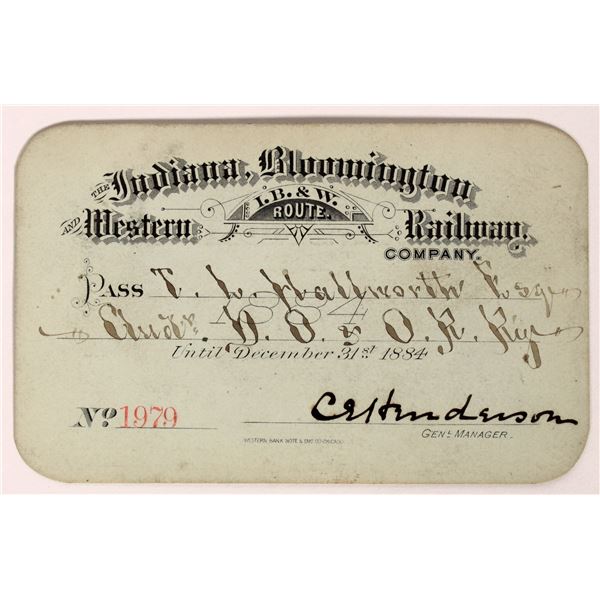 THE Indiana, Bloomington
I. B. & W.
ROUTE.
AND Western Railway.
COMPANY.
PASS T. L. Hallworth Esq
1884
Audr. D. O. & O. R. Ry
Until December 31st 1884
No. 1979
C E Henderson
GENL MANAGER.
WESTERN BANK NOTE & ENG. CO. CHICAGO